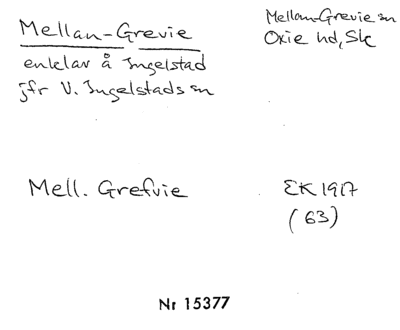 Mellan-Grevie
enklav å Ingelstad
jfr V. Ingelstads sn
Mellan-Grevie sn
Oxie hd, Sk
Mell. Grefvie
EK 1917
(63)
Nr 15377